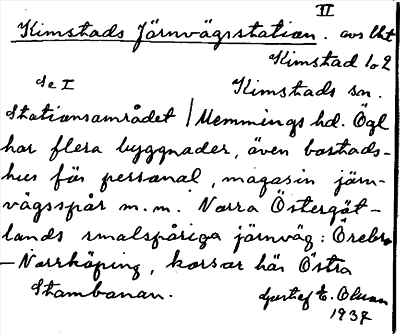 II
Kimstads Järnvägsstation. avs lht
Kimstad 1o2
Se I Kimstads sn.
Stationsområdet / Memmings hd. Ögl
har flera byggnader, även bostads-
hus för personal, magasin järn-
vägsspår m.m. Norra Östergöt-
lands smalspåriga järnväg: Örebro
-Norrköping, korsar här Östra
Stambanan. Gustaf E. Olsson
1937